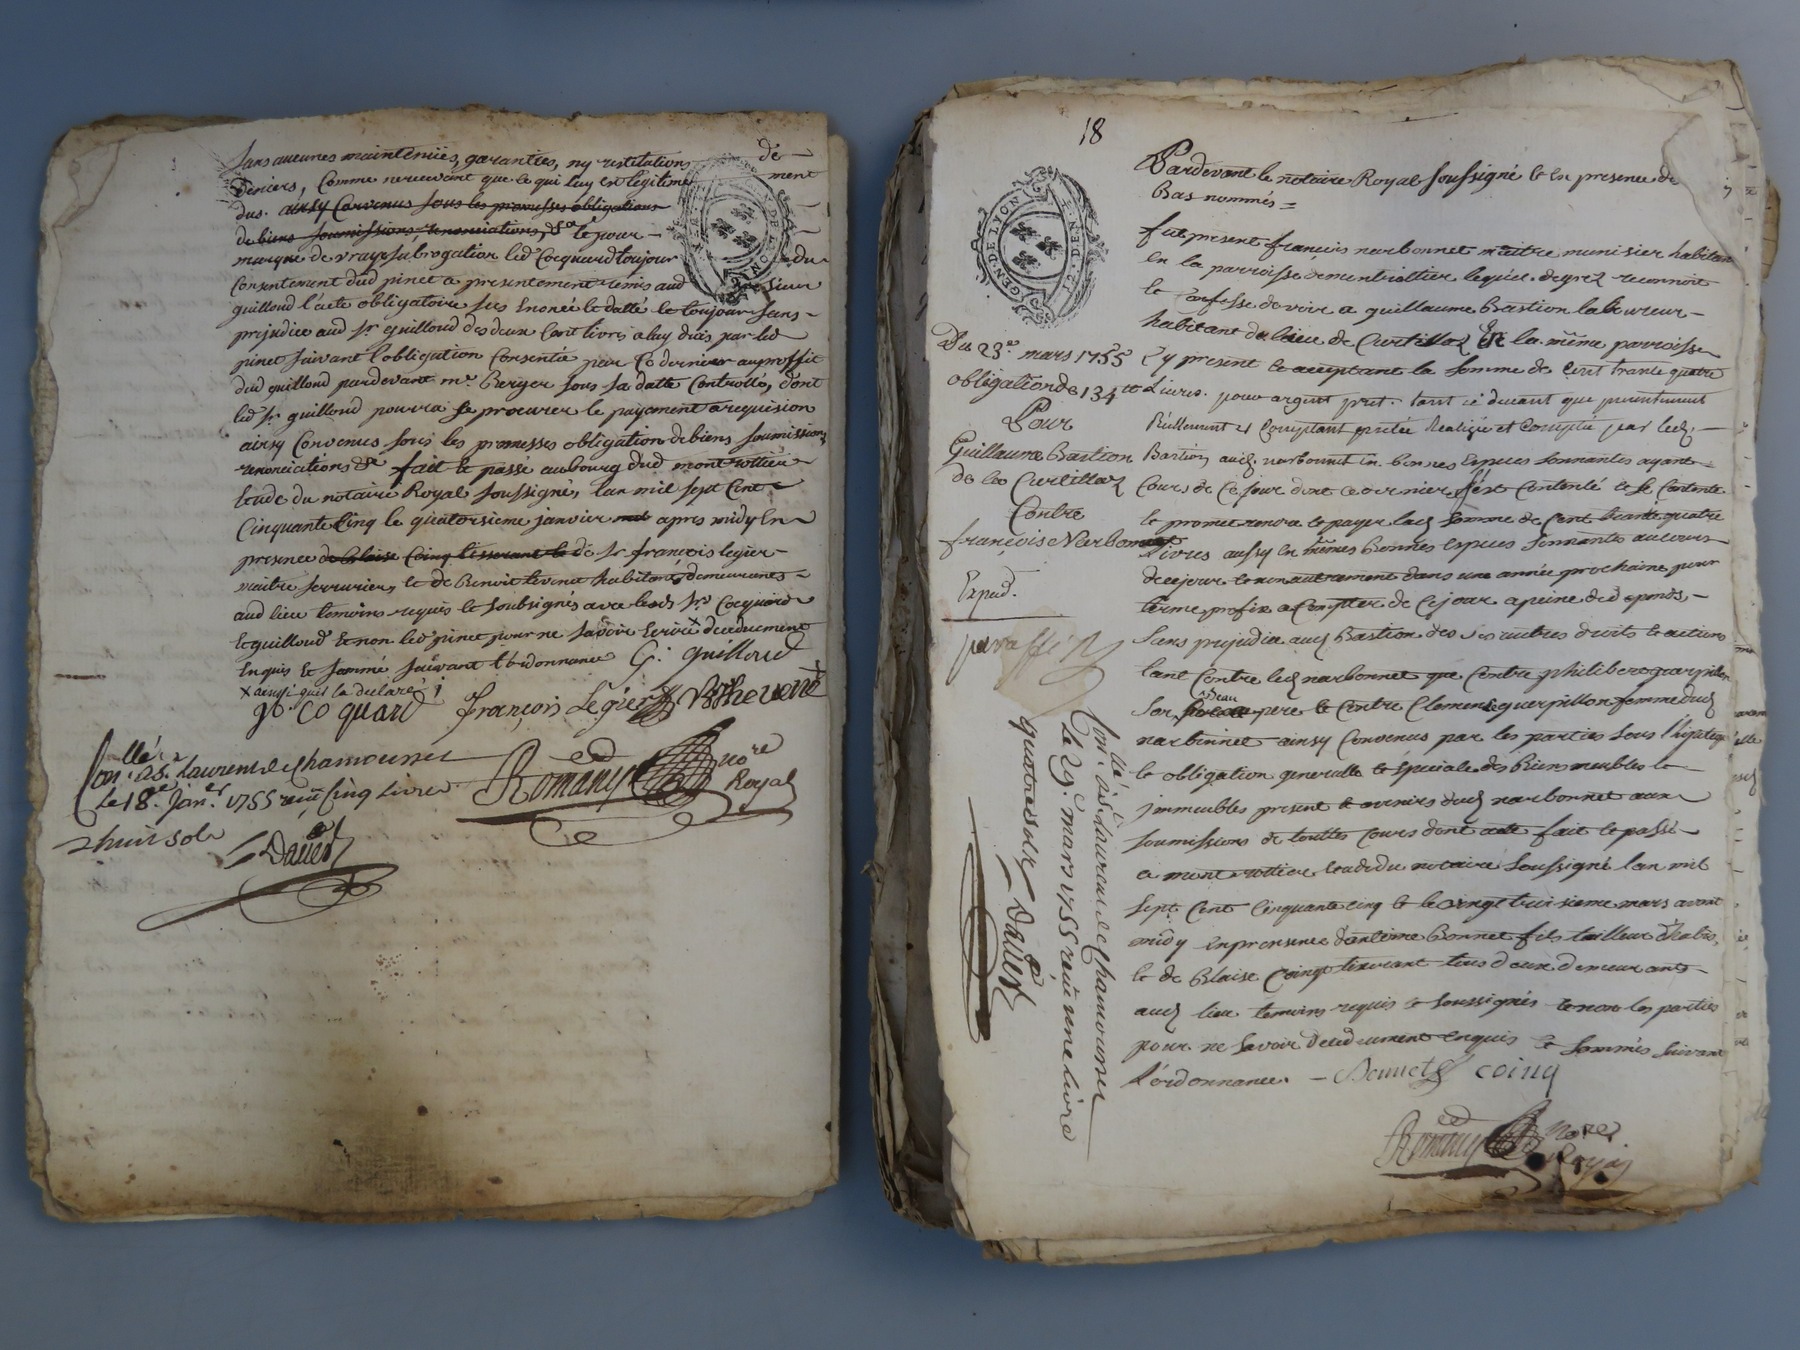 sans aucunes maintenües, garanties, ny restitutions de
deniers, Comme ne recevant que ce qui luy est legitimement
dus. ainsy Convenus sous les promesses obligations
de biens soumissions, renonciations, &a le pour
marque de vraye subrogation led Cocquard toujour du
Consentement dud pinet a presentement remis aud sieur
guilloud l'acte obligatoire sus Enoncé Et datté le toujour sans
prejudice aud sr guilloud des deux Cent livres a luy dües par led
pinet suivant l'obligation Consentie par Ce dernier au proffit
dud guilloud pardevant me Berger sous sa datte Controllée, dont
led sr guilloud pourra se procurer le payement a requision
ainsy Convenus sous les promesses obligation de biens soumissions
renonciations &a fait et passé au bourg dud montrottier
Etude du notaire Royal soussigné, lan mil sept Cent
Cinquante Cinq le quatorsieme janvier apres midy En
presence de Blaise Coing tisserant et de sr françois legier
maitre serrurier, et de Benoit tevenet habitants demeurants
aud lieu temoins requis et soubsignés avec lesd srs Cocquard
et guilloud Et non led pinet pour ne savoir Ecrire x de ce deument
Enquis Et sommé suivant l'ordonnance G: guilloud
x ainsi quil la declaré
Coquard françois Légier B thevenet
Conllé: a St laurent de Chamousset
Le 18e Janer 1755 reçû Cinq livres
Romany nore
Royal
huit sols
Daveŕ
18
GEN DE LYON
Pardevant le notaire Royal soussigné et En presence de
Bas nommés
fut present françois narbonnet maitre munisier habitant
En la parroisse de montrottier lequel de gré reconnoit
et Confesse devoir a guillaume Bastion laboureur
habitant du lieu de Curtillaz En la même parroisse
Du 23e mars 1755
Cy present et acceptant la somme de Cent trante quatre
obligation de 134 tt
Livres. pour argent pret. tant ci devant que presentement
Pour
Réellement et Comptant pretée Realisée et Comptée par led.
Guillaume Bastion
Bastion aud. narbonnet En bonnes Especes sonnantes ayant
de Curtillaz
Cours de Ce jour dont Ce dernier s'est Contenté et se Contente
Contre
et promet rendre et payer lad somme de Cent trante quatre
françois Narbonnet
Livres aussy En mêmes Bonnes Especes sonnantes au cours
de ce jour et non autrement dans une année prochaine pour
Expéd.
terme prefix a Compter de Ce jour a peine de depends,
sans prejudice aud Bastion de ses autres droits et actions
tant Contre led narbonnet que Contre philibert guerpillon
son Beau pere et Contre Clemence guerpillon femme dud
narbonnet ainsy Convenus par les parties sous l'hipoteque
et obligation generalle et speciale des Biens meubles et
jmmeubles present et avenirs dud narbonnet aux
soumissions de touttes Cours dont acte fait et passé
a montrottier Etude du notaire soussigné lan mil
sept Cent Cinquante Cinq et le vingt troisieme mars avant
midy En presence d'antoine Bonnet fils tailleur d'habits,
et de Blaise Coingt tisserant tous deux demeurants
aud lieu temoins requis et soussignés et non les parties
pour ne savoir de ce deument Enquis Et sommés suivant
L'ordonnance. Bonnet Coing
Romany nore
Royal
Conllé: a St Laurent de Chamousset
Le 29. mars 1755 reçû une livre
quatre sols Daveŕ